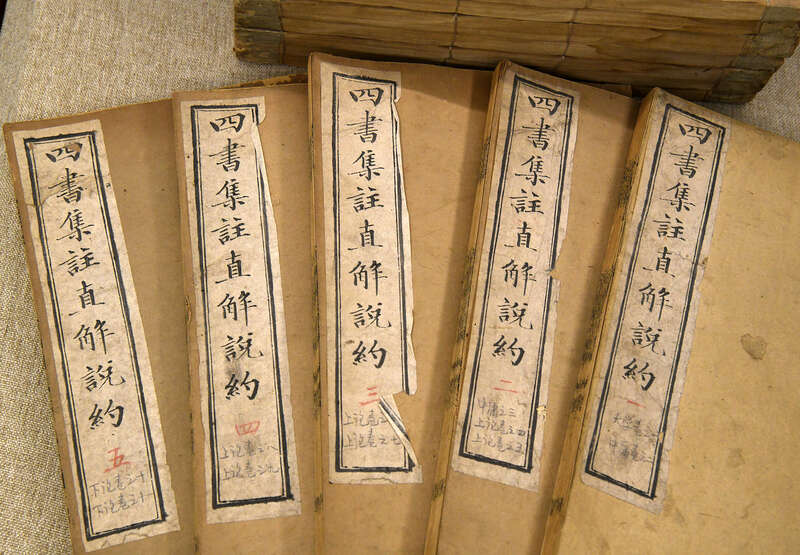 四書集註直解說約
一
四書集註直解說約
二
中庸卷三
上论卷四
上论卷五
四書集註直解說約
三
上论卷六
上论卷之七
四書集註直解說約
四
上论卷之八
上论卷之九
四書集註直解說約
五
下论卷之十
下论卷之十一